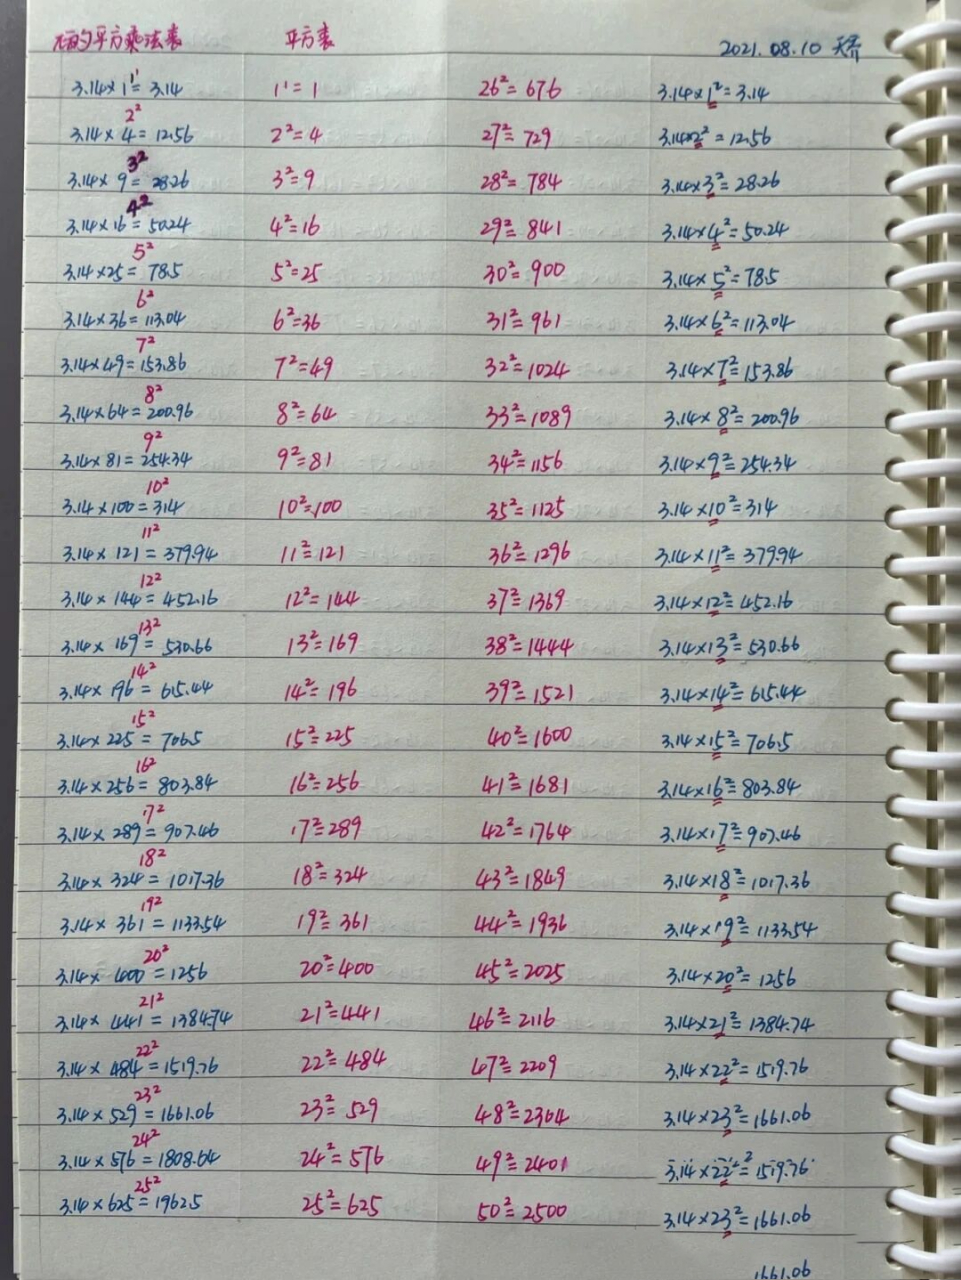 π的平方乘法表
1¹
3.14×1=3.14
2²
3.14×4=12.56
3²
3.14×9=28.26
4²
3.14×16=50.24
5²
3.14×25=78.5
6²
3.14×36=113.04
7²
3.14×49=153.86
8²
3.14×64=200.96
9²
3.14×81=254.34
10²
3.14×100=314
11²
3.14×121=379.94
12²
3.14×144=452.16
13²
3.14×169=530.66
14²
3.14×196=615.44
15²
3.14×225=706.5
16²
3.14×256=803.84
17²
3.14×289=907.46
18²
3.14×324=1017.36
19²
3.14×361=1133.54
20²
3.14×400=1256
21²
3.14×441=1384.74
22²
3.14×484=1519.76
23²
3.14×529=1661.06
24²
3.14×576=1808.64
25²
3.14×625=1962.5
平方表
1¹=1
2²=4
3²=9
4²=16
5²=25
6²=36
7²=49
8²=64
9²=81
10²=100
11²=121
12²=144
13²=169
14²=196
15²=225
16²=256
17²=289
18²=324
19²=361
20²=400
21²=441
22²=484
23²=529
24²=576
25²=625
26²=676
27²=729
28²=784
29²=841
30²=900
31²=961
32²=1024
33²=1089
34²=1156
35²=1125
36²=1296
37²=1369
38²=1444
39²=1521
40²=1600
41²=1681
42²=1764
43²=1849
44²=1936
45²=2025
46²=2116
47²=2209
48²=2304
49²=2401
50²=2500
2021.08.10
3.14×1²=3.14
3.14×2²=12.56
3.14×3²=28.26
3.14×4²=50.24
3.14×5²=78.5
3.14×6²=113.04
3.14×7²=153.86
3.14×8²=200.96
3.14×9²=254.34
3.14×10²=314
3.14×11²=379.94
3.14×12²=452.16
3.14×13²=530.66
3.14×14²=615.44
3.14×15²=706.5
3.14×16²=803.84
3.14×17²=907.46
3.14×18²=1017.36
3.14×19²=1133.54
3.14×20²=1256
3.14×21²=1384.74
3.14×22²=1519.76
3.14×23²=1661.06
3.14×22²=1519.76
3.14×23²=1661.06
1661.06